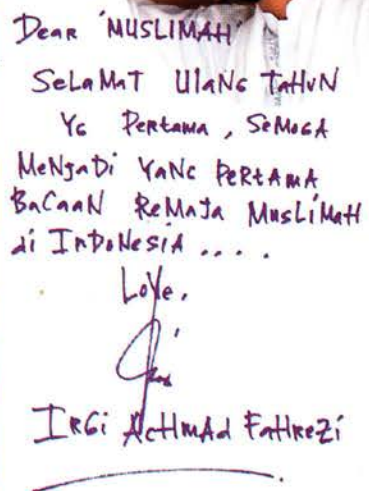 Dear 'MUSLIMAH'
SeLaMaT UlaNG TaHuN
YG Pertama, SeMOGA
MeNjaDi YaNG PeRtAmA
BaCaaN ReMaJa MusLiMaH
di InDoNeSiA ....
Love,
IRGi AcHmAd FaHReZi